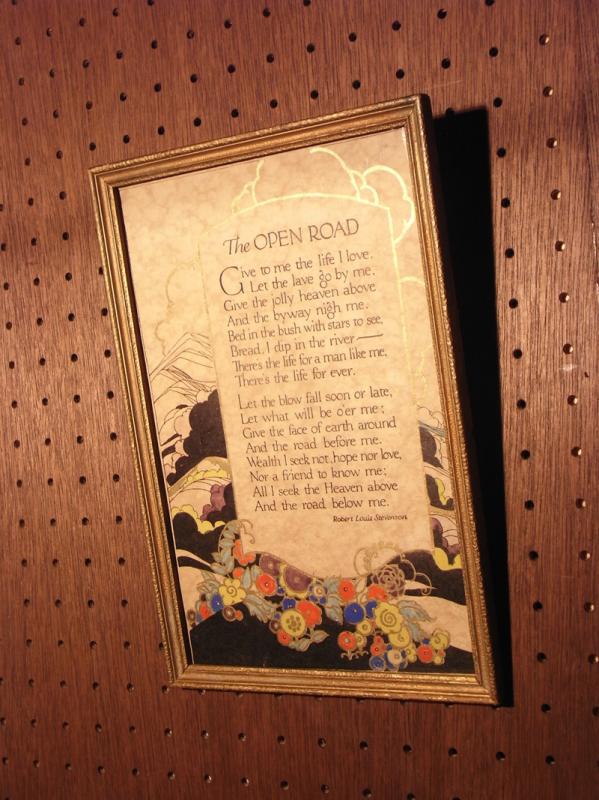 The OPEN ROAD
Give to me the life I love,
Let the lave go by me,
Give the jolly heaven above
And the byway nigh me.
Bed in the bush with stars to see,
Bread, I dip in the river—
There's the life for a man like me,
There's the life for ever.
Let the blow fall soon or late,
Let what will be o'er me;
Give the face of earth around
And the road before me.
Wealth I seek not, hope nor love,
Nor a friend to know me;
All I seek the Heaven above
And the road below me.
Robert Louis Stevenson